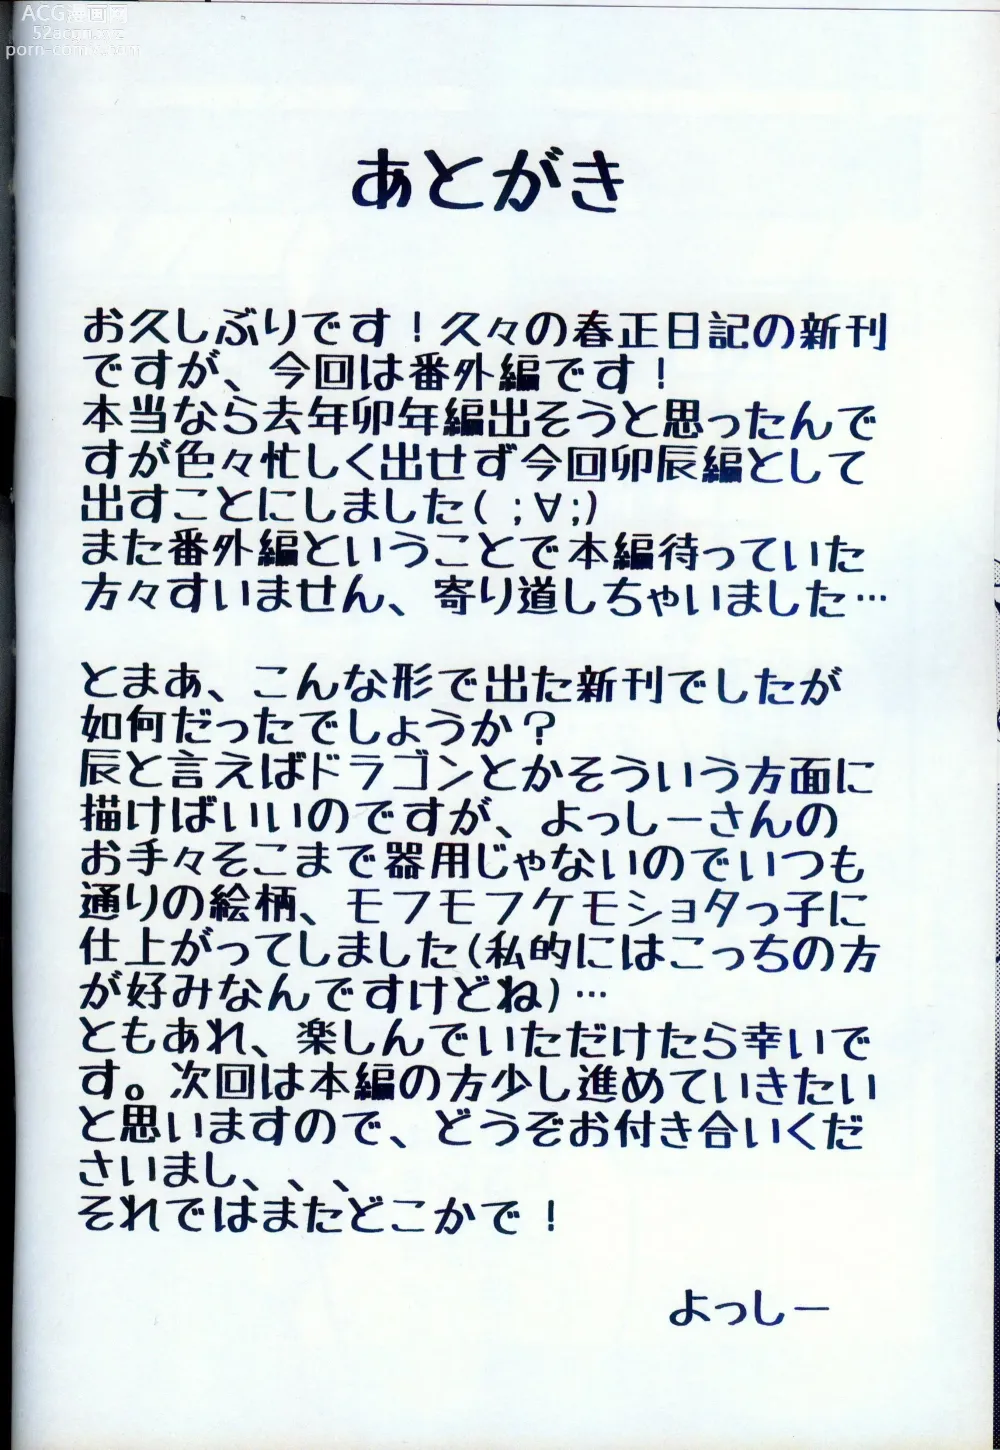 ACG漫画网
あとがき
お久しぶりです！久々の春正日記の新刊
ですが、今回は番外編です！
本当なら去年卯年編出そうと思ったんで
すが色々忙しく出せず今回卯辰編として
出すことにしました( ;∀;)
また番外編ということで本編待っていた
方々すいません、寄り道しちゃいました…
とまあ、こんな形で出た新刊でしたが
如何だったでしょうか？
辰と言えばドラゴンとかそういう方面に
描けばいいのですが、よっしーさんの
お手々そこまで器用じゃないのでいつも
通りの絵柄、モフモフケモショタっ子に
仕上がってしました(私的にはこっちの方
が好みなんですけどね)…
ともあれ、楽しんでいただけたら幸いで
す。次回は本編の方少し進めていきたい
と思いますので、どうぞお付き合いくだ
さいまし、、、
それではまたどこかで！
よっしー